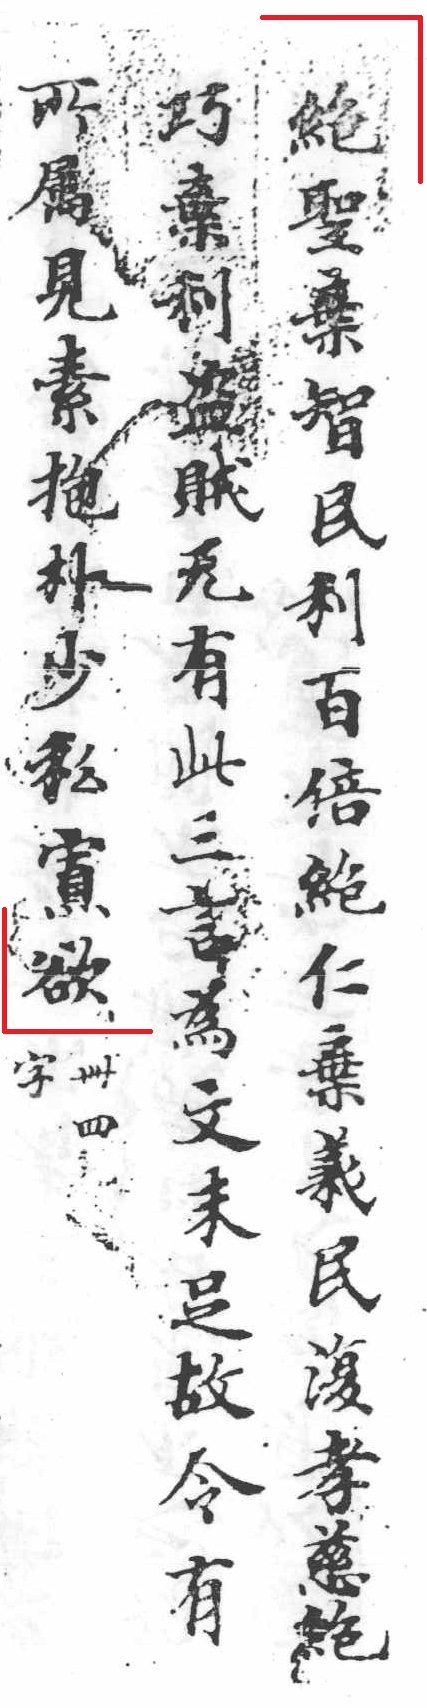 絶聖棄智民利百倍絶仁棄義民復孝慈絶
巧棄利盗賊无有此三言為文未足故令有
所属見素抱朴少私寡欲
卌四
字